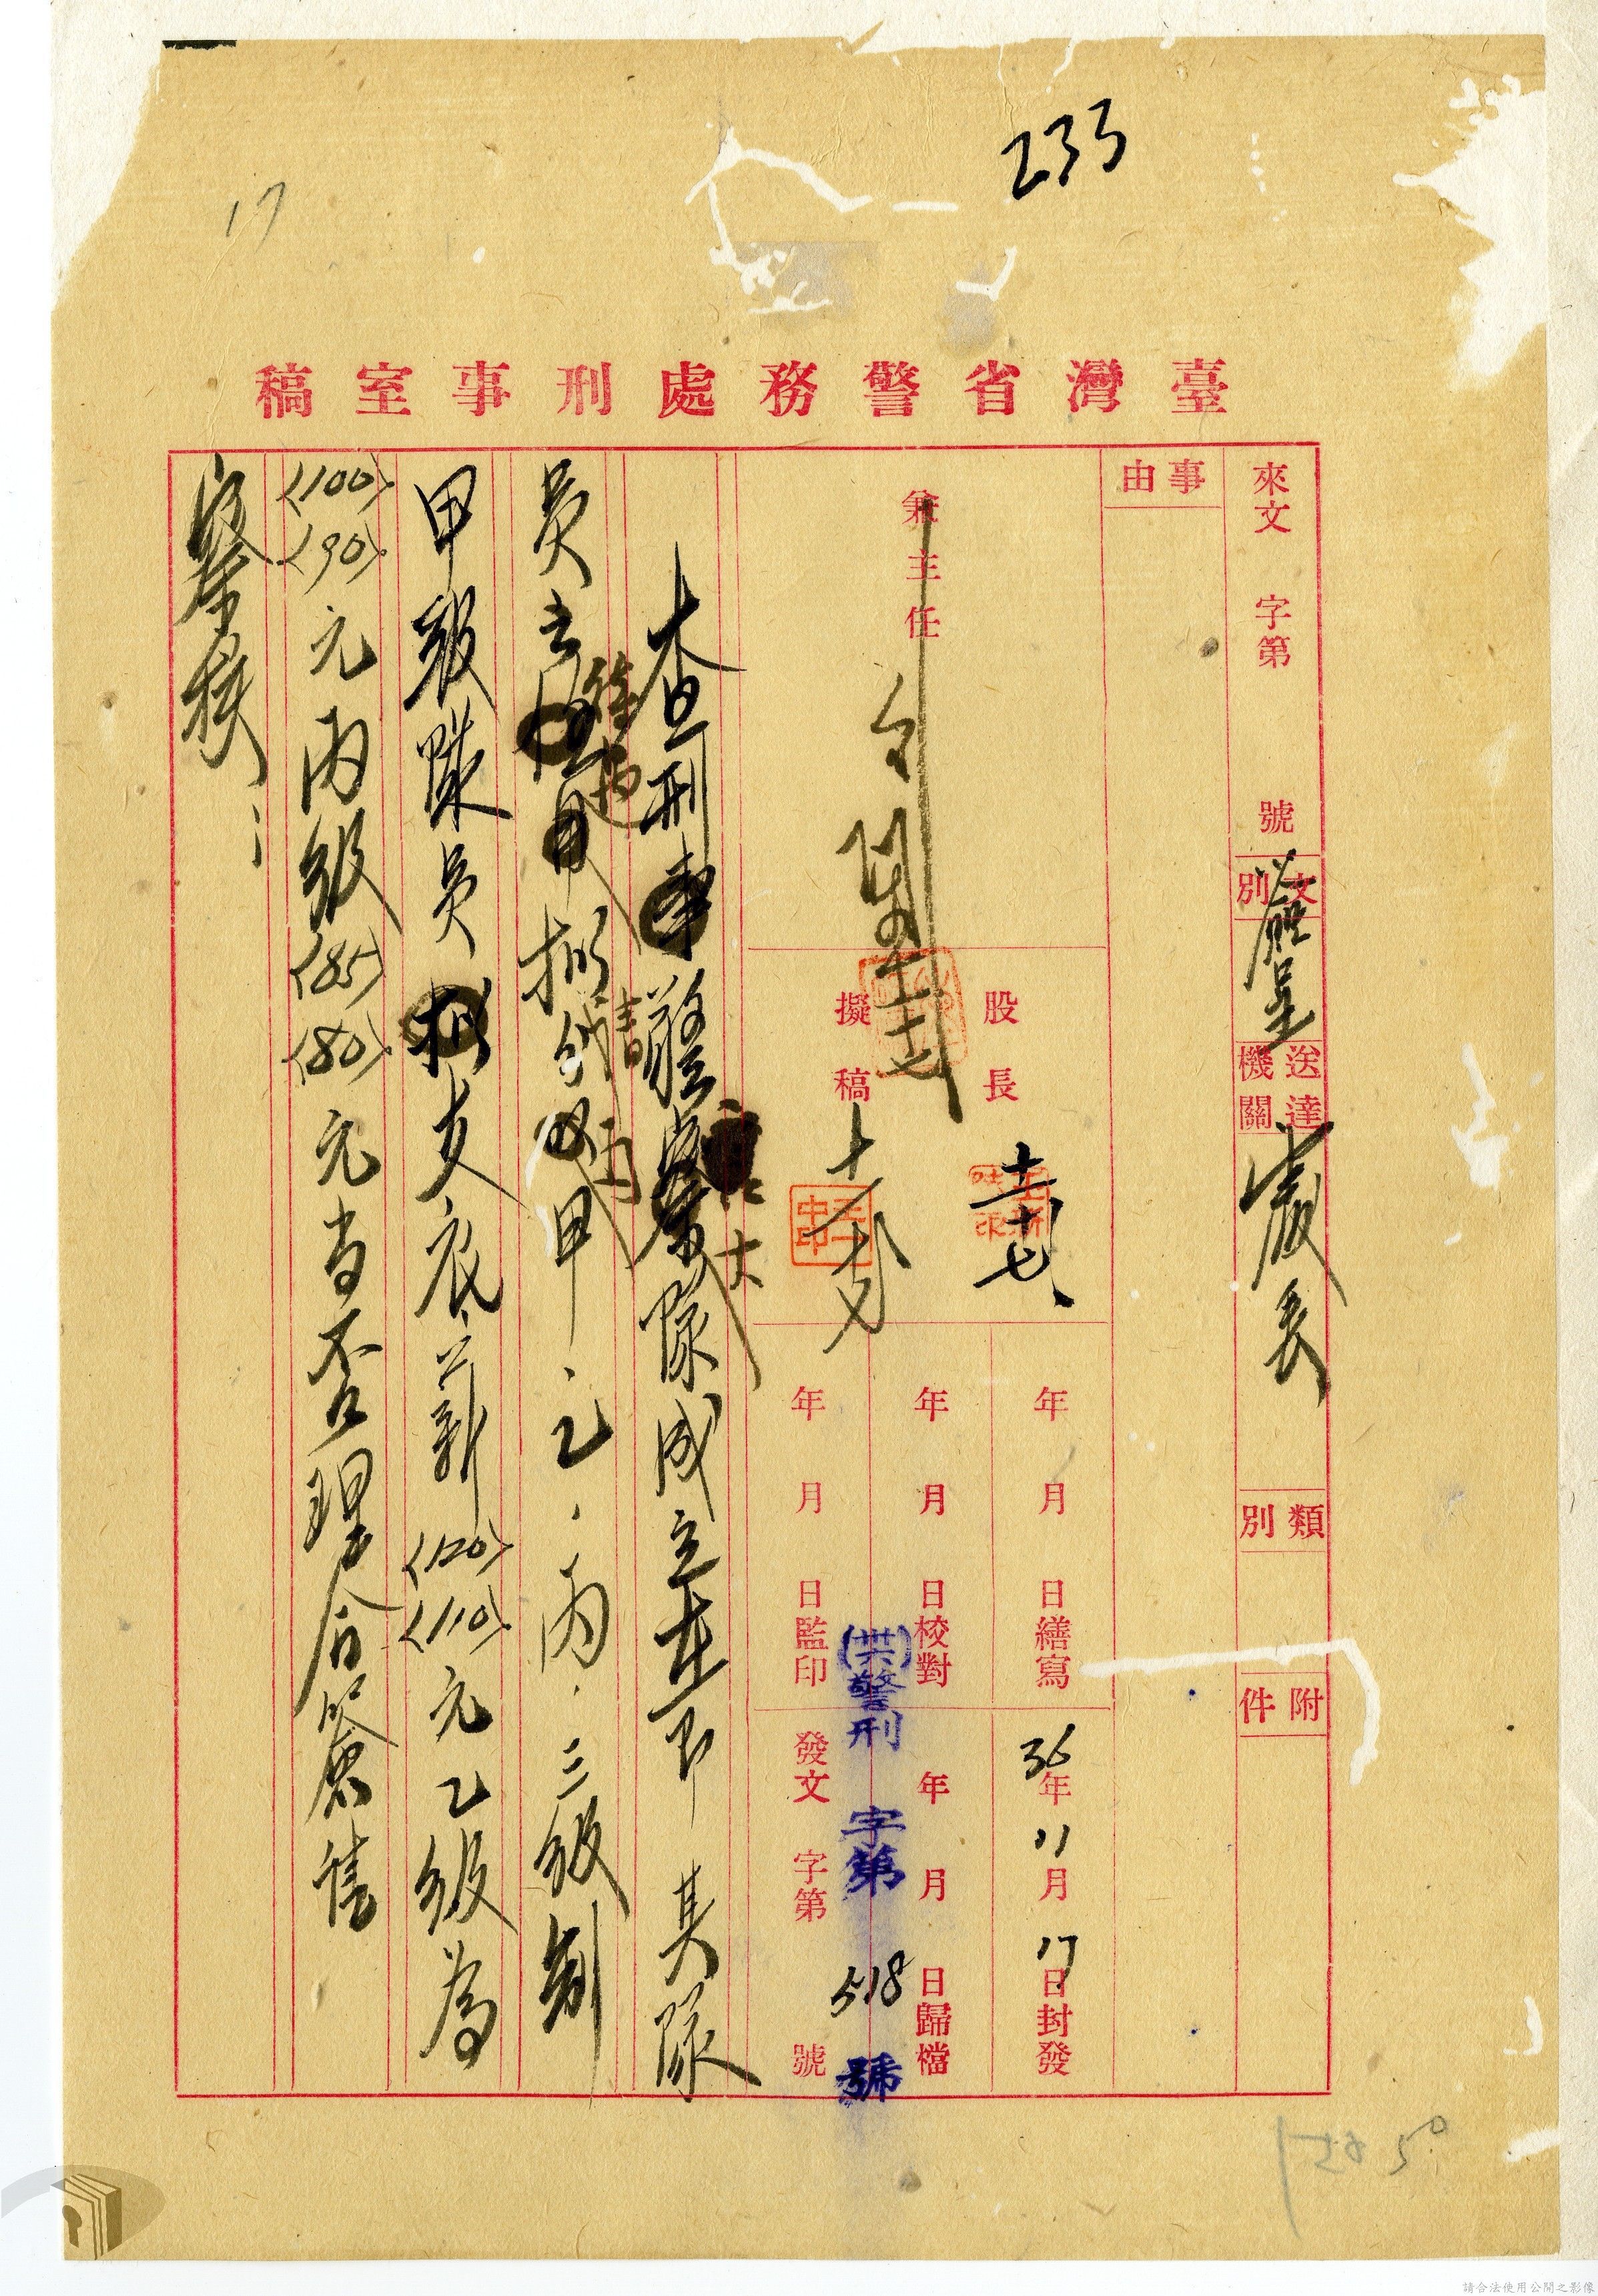 233
17
臺灣省警務處刑事室稿
來文 字第 號
文別 簽呈
送達機關
類別
附件
事由
兼主任
股長
十一 十七
擬稿
年 月 日繕寫
年 月 日校對
年 月 日監印
36年11月17日封發
年 月 日歸檔
發文 字第 號
(卅六)警刑 字第 518 號
查刑警大隊成立在即 其隊
員
擬請
甲、乙、丙、三級制
甲級隊員 支底薪(120)(110)元乙級為
(100)(90)元丙級(85)(80)元當否理合簽請
察核
請合法使用公開之影像